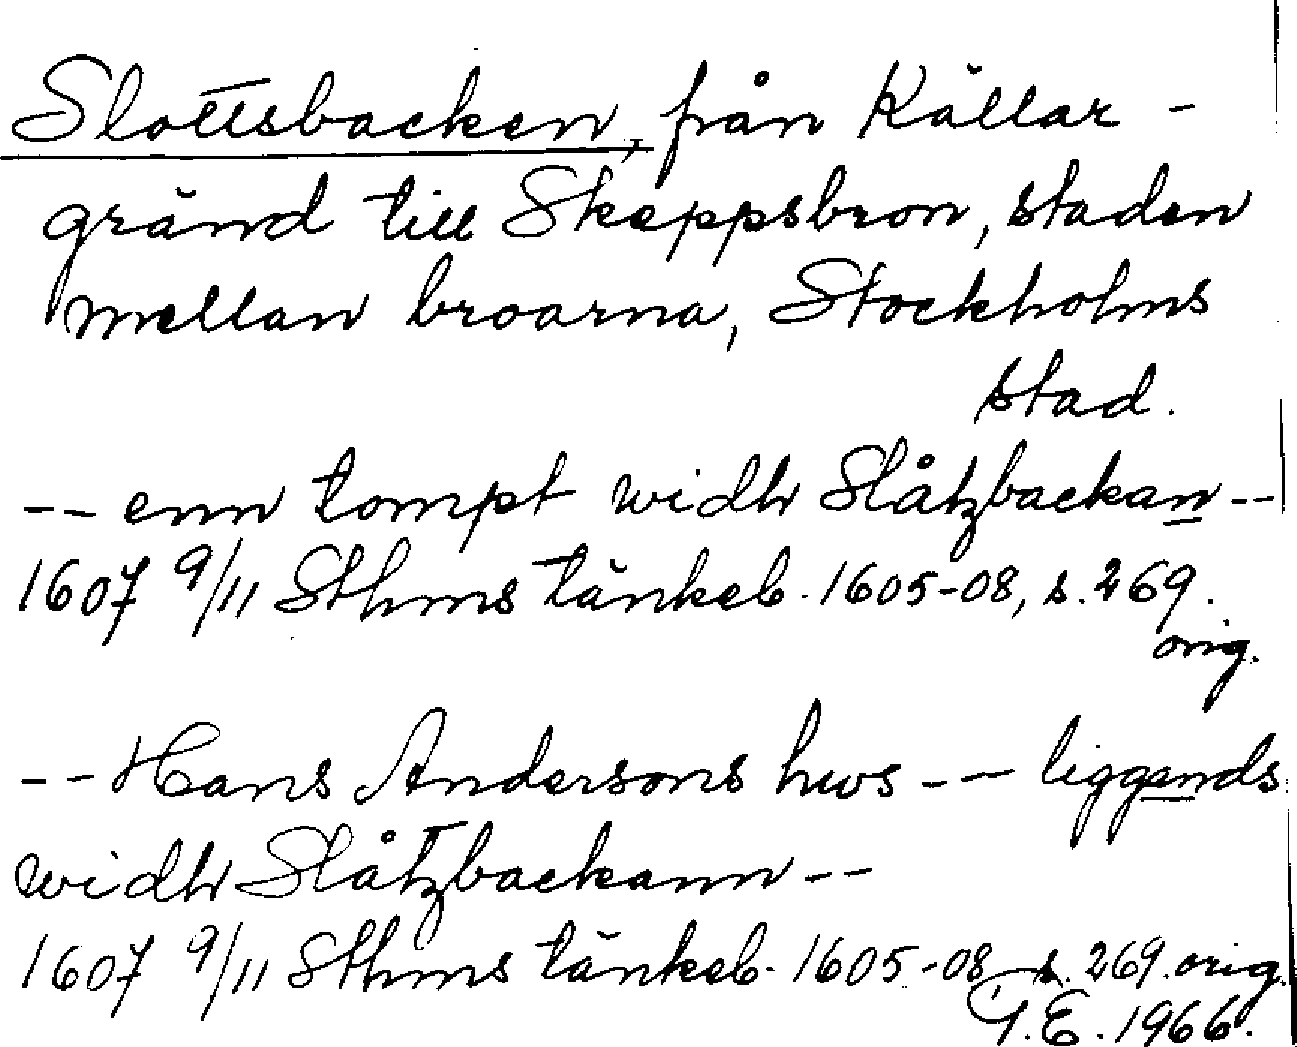 Slottsbacken, från Källar-
gränd till Skeppsbron, staden
mellan broarna, Stockholms
stad.
-- enn tompt widh Slåtzbackan --
1607 9/11 Sthms tänkeb. 1605-08, s. 269.
orig.
-- Hans Andersons hws -- liggends
widh Slåtzbackann --
1607 9/11 Sthms tänkeb. 1605-08 s. 269. orig.
G.E. 1966.